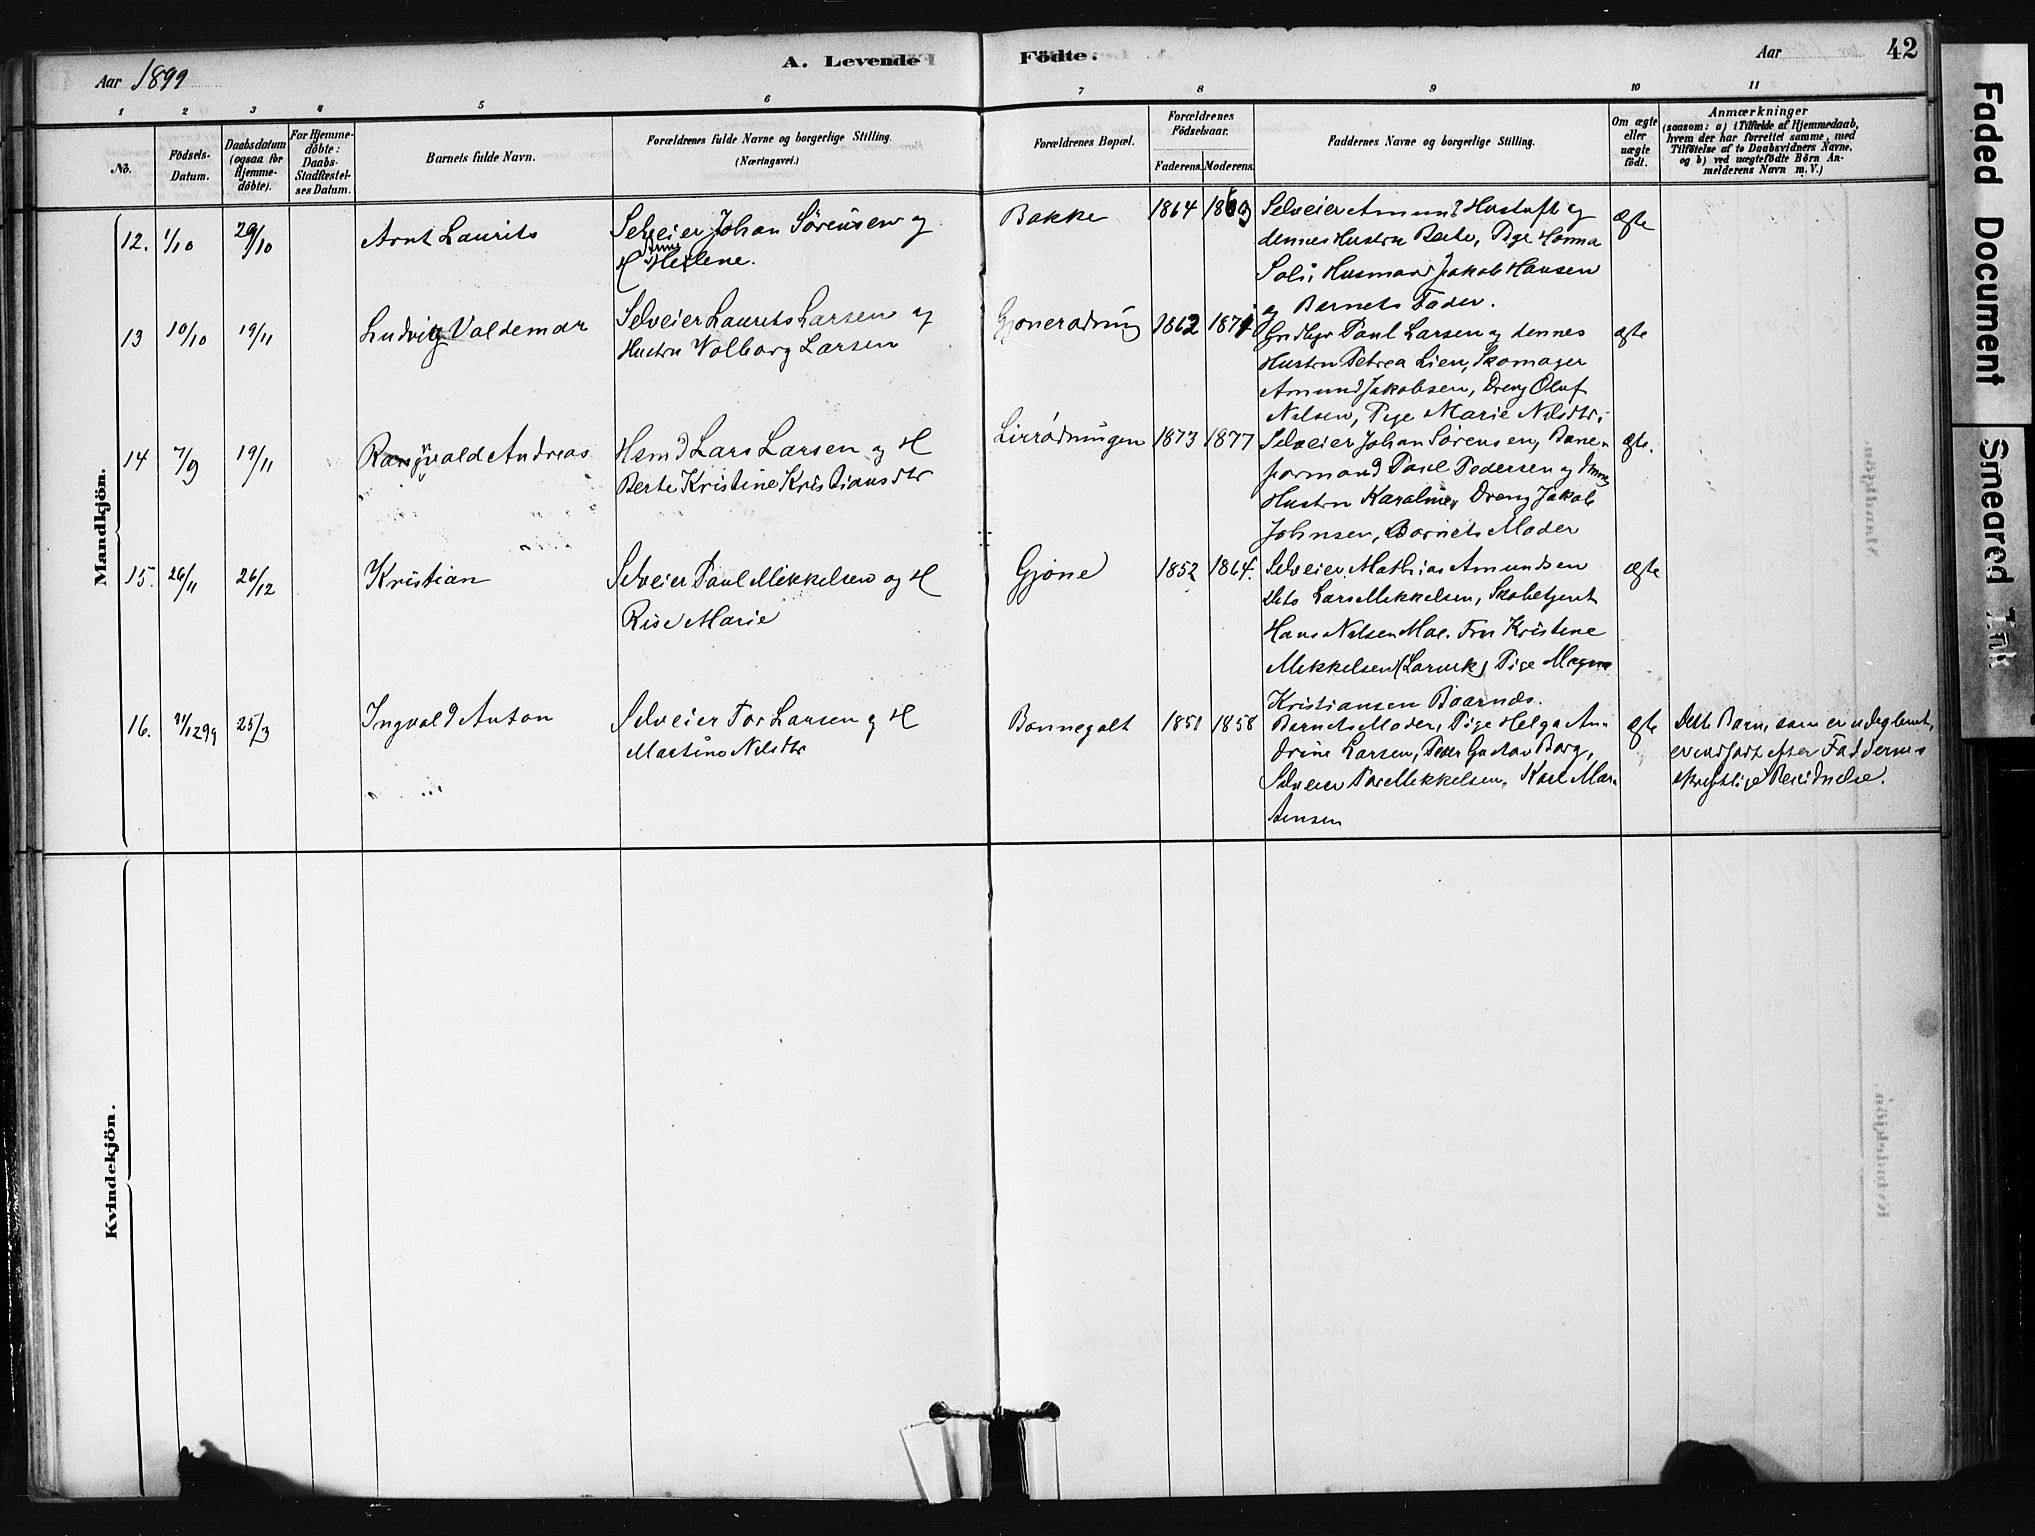 Aar 1899
A. Levende
Födte.
Aar
42
1 2 3 4 5 6 7 8 9 10 11
No.
Födsels-Datum.
Daabsdatum (ogsaa for Hjemme-döbte).
For Hjemme-döbte: Daabs-Stadfæstel-ses Datum.
Barnets fulde Navn.
Forældrenes fulde Navne og borgerlige Stilling.
(Næringsvei.)
Forældrenes Bopæl.
Forældrenes Födselsaar.
Faderens. Moderens.
Faddernes Navne og borgerlige Stilling.
Om ægte eller uægte födt.
Anmærkninger
(saasom: a) i Tilfælde af Hjemmedaab,
hvem der har forrettet samme, med
Tilföielse af to Daabsvidners Navne,
og b) ved uægtefödte Börn An-
melderens Navn m. V.)
Mandkjön.
12. 1/10 29/10 Arnt Laurits
Selveier Johan Sörensen og
H Anne Helene.
Bakke 1864 1863
Selveier Amund Hustuft og
dennes Hustru Berte, Pige Hanna
Soli, Husmand Jakob Hansen
og Barnets Fader.
ægte
13 10/10 19/11 Ludvig Valdemar
Selveier Laurits Larsen og
Hustru Volborg Larsen
Gjonerødning 1862 1871
Grdbgr Paul Larsen og dennes
Hustru Petrea Lien, Skomager
Amund Jakobsen, Dreng Oluf
Nilsen, Pige Marie Nilsdtr.
ægte
14 7/9 19/11 Rangvald Andreas
Hsmd Lars Larsen og H
Berte Kristine Kristiansdtr
Lierødningen 1873 1877
Selveier Johan Sørensen, Bane-
formand Paul Pedersen og dennes
Hustru Karoline, Dreng Jakob
Johnsen, Barnets Moder
ægte.
15. 26/11 26/12 Kristian
Selveier Paul Mikkelsen og H
Rise Marie
Gjone 1852 1864.
Selveier Mathias Amundsen
Dito Lars Mikkelsen, Skobetjent
Hans Nilsen Moe. Fru Kristine
Mikkelsen (Larvik) Pige Magna
Kristiansen Baarnæs.
ægte
16. 31/12 99 25/3 Ingvald Anton
Selveier Tor Larsen og H
Martine Nilsdtr
Bonnegolt 1851 1858
Barnets Moder, Pige Helga An-
drine Larsen, Peder Gustav Borg,
Selveier Tor Mikkelsen, Karl Mar-
ægte
Dette Barn, som er udeglemt,
er indført efter Faddernes
skriftlige Bevidnelse.
Kvindekjön.
Faded Document
Smeared Ink